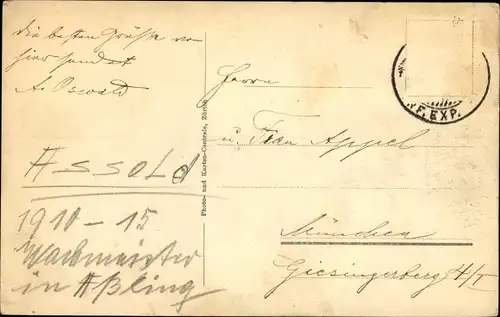 die besten Grüße von
hier sendet
A. Oswald
ASSOLd
1910 - 15
Wachmeister
in Aßling
Photo- und Karten-Centrale, Zürich
Herrn
u. Frau Appel
München
Giesingerberg 4/I
F. EXP.